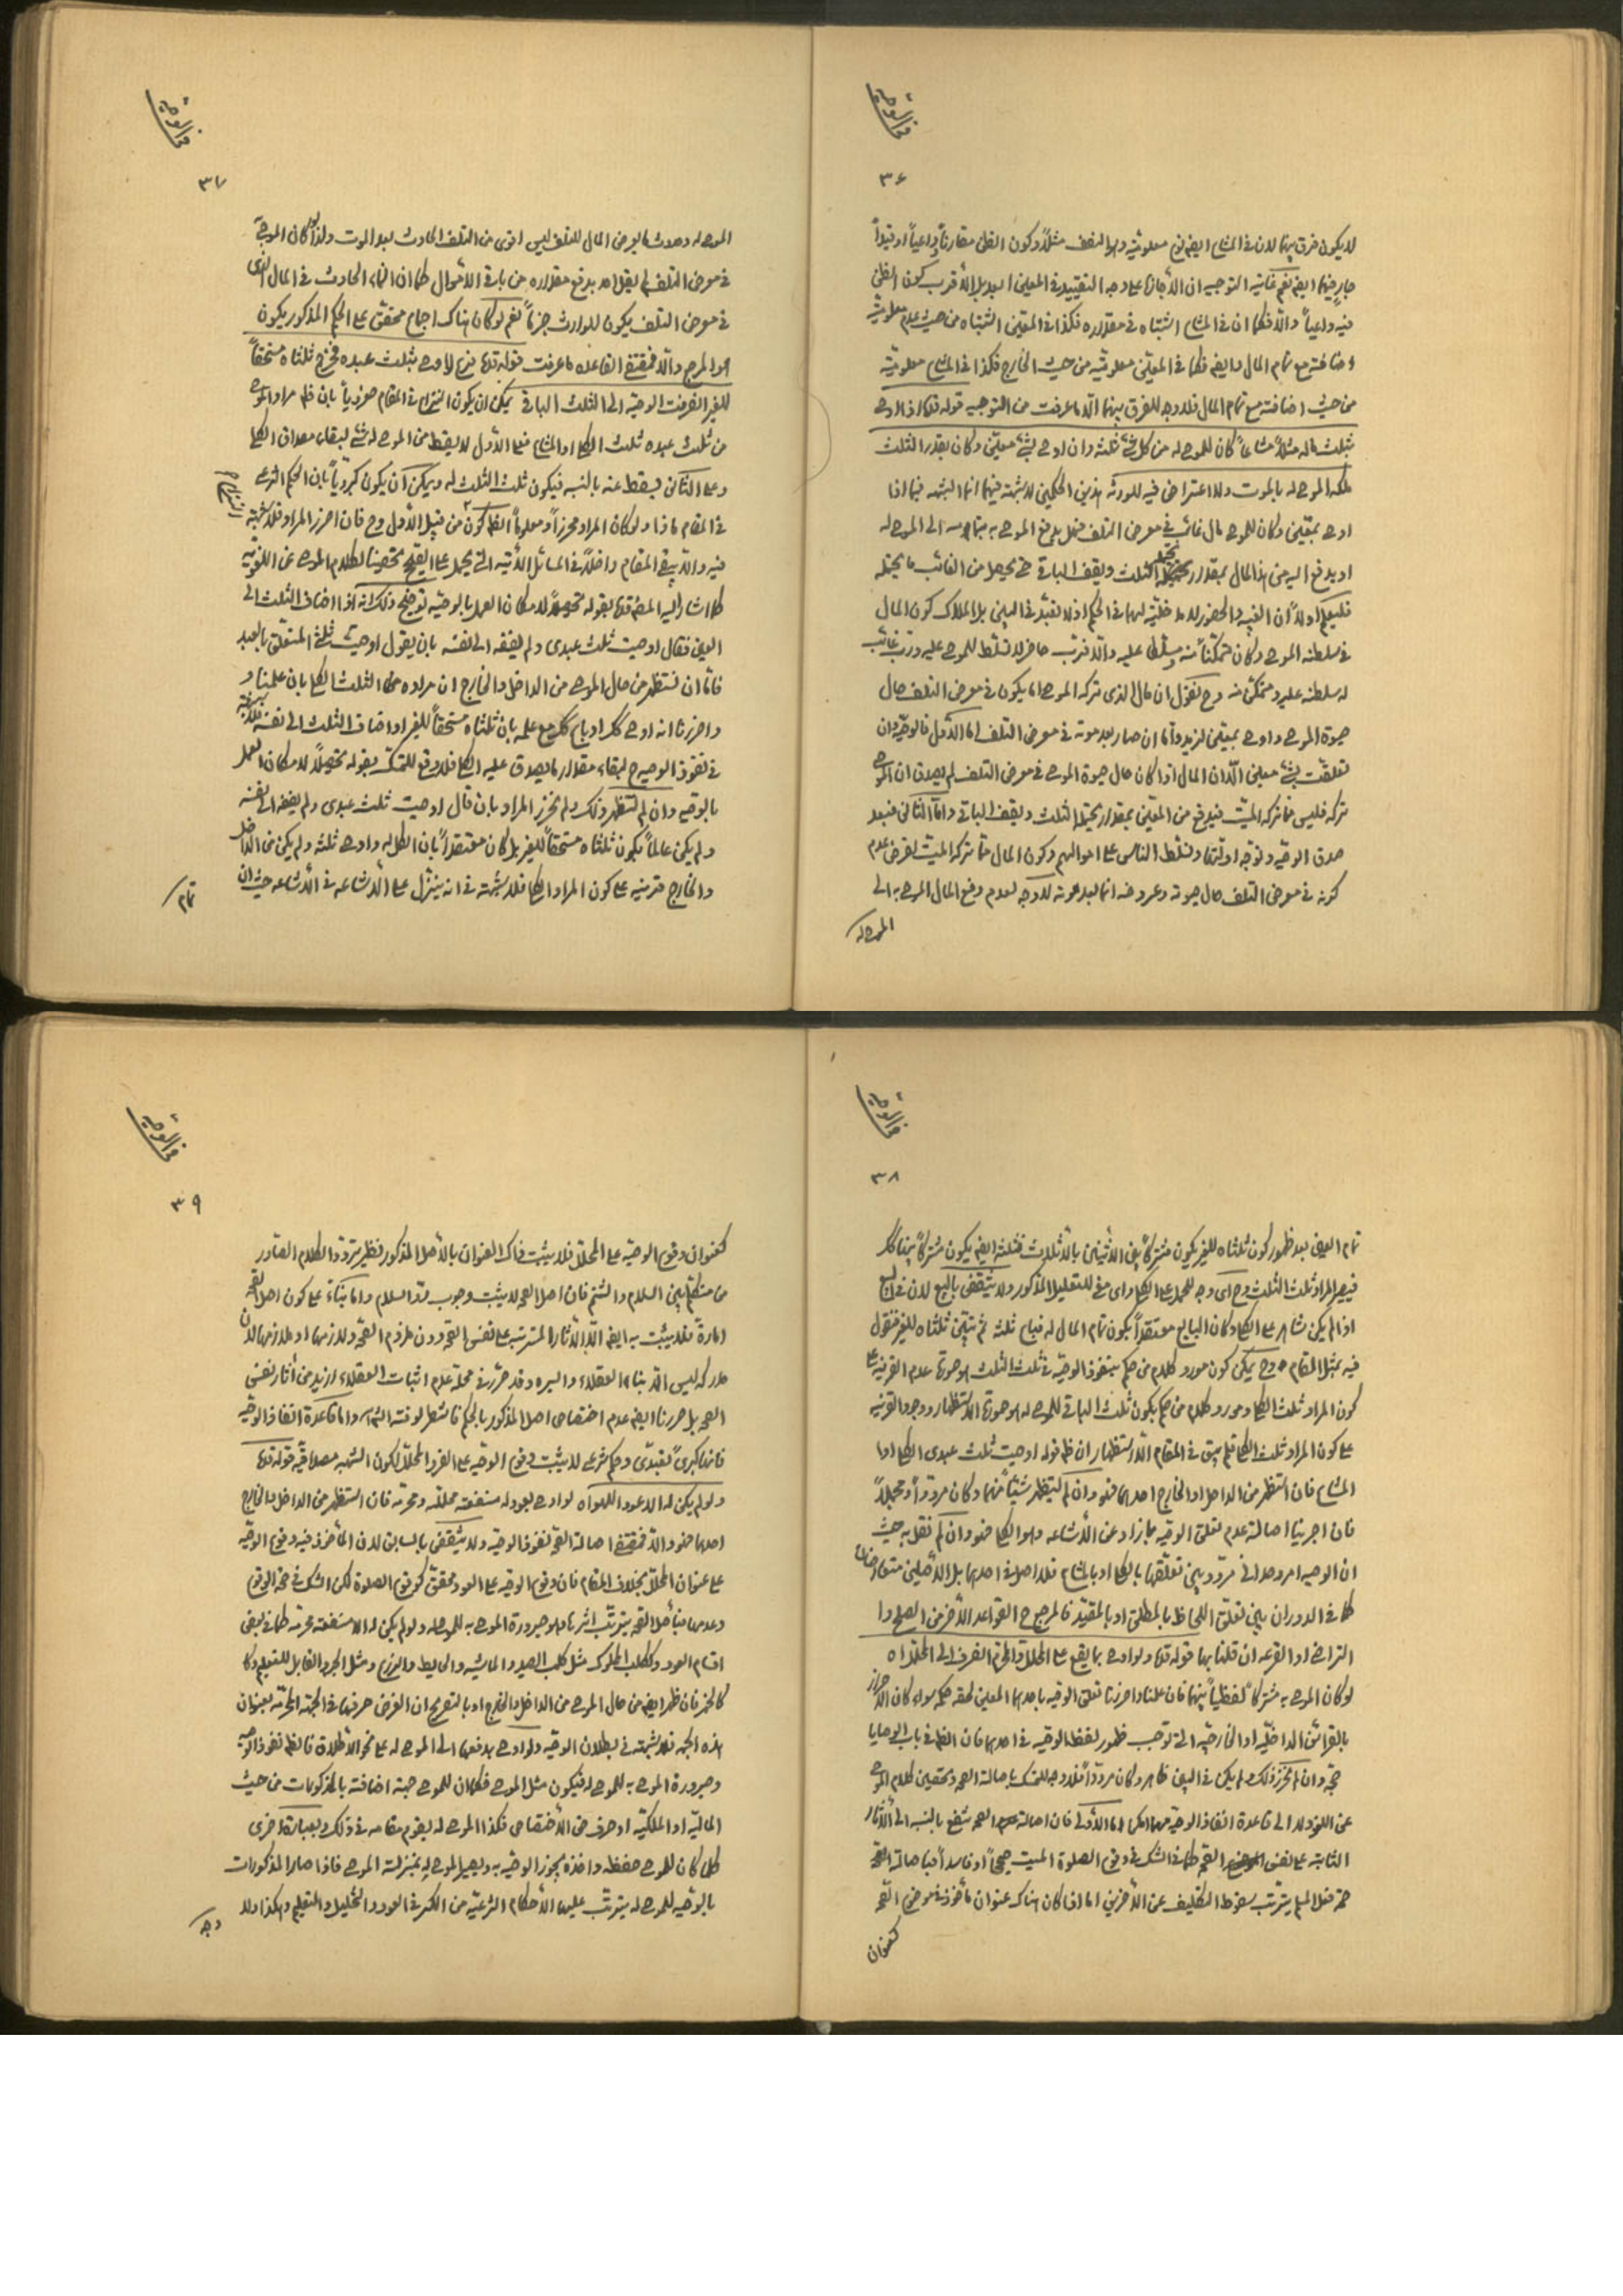 في الوصية
٣٦
لا يكون فرق بينهما لان في المشاع ايضا نوع معلومية وهو النصف مثلاً وكون الظن مقارناً وداعياً او قيداً
جار فيهما ايضا نعم غاية التوجيه ان الاجازة على وجه التقييد في المعين ابعد بل الاقرب كون الظن
فيه داعياً والا فكما ان في المشاع اشتباه في مقداره فكذا في المعين اشتباه من حيث عدم معلومية
اضافته مع تمام المال وايضا فكما في المعين معلومية من حيث الخارج فكذا في المشاع معلومية
من حيث اضافته مع تمام المال فلا وجه للفرق بينهما الا ما عرفت من التوجيه قوله قده اذا اوصى
بثلث ماله مثلاً مشاعاً كان للموصى له من كل شئ ثلثه وان اوصى بشئ معين وكان بقدر الثلث
ملكه الموصى له بالموت ولا اعتراض فيه للورثة هذين الحكمين لا شبهة فيهما انما الشبهة فيما اذا
اوصى بمعين وكان للموصي مال غائب في معرض التلف فهل يدفع الموصى به بتمامه الى الموصى له
او يدفع اليه من هذا المال بمقدار يحتمله الثلث ويقف الباقي حتى يحصل من الغائب ما يحتمله
فليعلم اولاً ان الغيبة والحضور لا مدخلية لهما في الحكم اذ لا تعبد في البين بل الملاك كون المال
في سلطنة الموصي وكان متمكناً منه ومسلطا عليه والا فرب حاضر لا تسلط للموصي عليه ورب غائب
له سلطنة عليه ومتمكن منه وح نقول ان مال الذي تركه الموصي اما يكون في معرض التلف حال
حيوة الموصي واوصى بمعين لزيد واما ان صار بعد موته في معرض التلف اما الاول فالوصية وان
تعلقت بشئ معين الا ان المال اذا كان حال حيوة الموصي في معرض التلف لم يصدق ان الموصي
تركه فليس مما تركه الميت فيدفع من المعين بمقدار يحتمله الثلث ويقف الباقي واما الثاني فبعد
صدق الوصية وتوجه ادلتها وتسلط الناس على اموالهم وكون المال مما تركه الميت لفرض عدم
كونه في معرض التلف حال حيوته وعروضه انما بعد موته لا وجه لعدم دفع المال الموصى به الى
الموصى له
في الوصية
٣٧
الموصى له وحدوث ما يوجب المال للتلف ليس اقوى من التلف الحادث بعد الموت ولذا لو كان الموصى به
في معرض التلف لم يقل احد بدفع مقداره من باقي الاموال كما ان النماء الحادث في المال الذي
في معرض التلف يكون للوارث جزماً نعم لو كان هناك اجماع محقق على الحكم المذكور يكون
هو المرجع والا فمقتضى القاعدة ما عرفت قوله قده فرع لو اوصى بثلث عبده فخرج ثلثاه مستحقاً
للغير انصرفت الوصية الى الثلث الباقي يمكن ان يكون النزاع في المقام صغروياً بان ظهر مراد الموصي
من ثلث عبده ثلث الكلي او المشاع فعلى الاول لا يسقط من الموصى له شئ لبقاء مصداق الكلي
وعلى الثاني يسقط عنه بالنسبة فيكون ثلث الثلث له ويمكن ان يكون كبروياً بان الحكم الشرعي
في المقام ماذا ولو كان المراد محرزاً ومعلوماً الظاهر كون النزاع من قبيل الاول وح فان احرز المراد فلا شبهة
فيه والا يبقى المقام داخلاً في المسائل الآتية التي يحمل على الصحيح تحصيناً لكلام الموصي عن اللغوية
كما اشار اليه المصنف قده بقوله تحصيلاً لامكان العمل بالوصية توضيح ذلك انه اذا اضاف الثلث الى
العين فقال اوصيت ثلث عبدي ولم يضفه الى نفسه بان يقول اوصيت ثلثي المتعلق بالعبد
فاما ان نستظهر من حال الموصي من الداخل والخارج ان مراده من الثلث الكلي بان علمنا
واحرزنا انه اوصى كك او باع كك مع علمه بان ثلثاه مستحقاً للغير او اضاف الثلث الى نفسه فلا شبهة
في نفوذ الوصية ح لبقاء مقدار ما يصدق عليه الكلي فلا وقع للتمسك بقوله تحصيلاً لامكان العمل
بالوصية وان لم نستظهر ذلك ولم نحرز المراد بان قال اوصيت ثلث عبدي ولم يضفه الى نفسه
ولم يكن عالماً بكون ثلثاه مستحقاً للغير بل كان معتقداً بان الكل له واوصى ثلثه ولم يكن من الداخل
والخارج قرينة على كون المراد الكلي فلا شبهة في انه ينزل على الاشاعة في الاشاعة حيث ان
تمام
في الوصية
٣٨
تمام العين بعد ظهور كون ثلثاه للغير يكون مشتركاً بين الاثنين بالاثلاث فثلثه ايضا يكون مشتركاً بينهما كك
فيصير المراد ثلث الثلث وح اي وجه للحمل على الكلي واي معنى للتعليل المذكور ولا يتنقض بالبيع لان في البيع
اذا لم يكن شاهد على الكلي وكان البايع معتقداً بكون تمام المال له فباع ثلثه ثم تبين ثلثاه للغير فنقول
فيه بمثل المقام وح يمكن كون مورد كلام من حكم بنفوذ الوصية في ثلث الثلث هو صورة عدم القرينة على
كون المراد ثلث الكلي ومورد كلام من حكم بكون ثلث الباقي للموصى له هو صورة الاستظهار ووجود القرينة
على كون المراد ثلث الكلي فلم يبق في المقام الا استظهار ان ظهر قوله اوصيت ثلث عبدي الكلي او
المشاع فان استظهر من الداخل او الخارج احدهما فهو وان لم يستظهر شيئاً منهما وكان مردداً ومجملاً
فان اجرينا اصالة عدم تعلق الوصية بما زاد عن الاشاعة وهو الكلي فهو وان لم نقل به حيث
ان الوصية امر وحداني مردد بين تعلقها بالكلي او بالمشاع فلا اصل في احدهما بل الاصلين متعارضان
كما في الدوران بين تعلق اللحاظ بالمطلق او بالمقيد فالمرجع ح القواعد الاخر من الصلح او
التراضي او القرعة ان قلنا بها قوله قده ولو اوصى بما يقع على المحلل والمحرم انصرف الى المحلل اه
لو كان الموصى به مشتركاً لفظياً بينهما فان علمنا واحرزنا تعلق الوصية باحدهما المعين لحقه حكمه سواء كان الاحراز
بالقرائن الداخلية او الخارجية التي توجب ظهور لفظ الوصية في احدهما فان الظاهر في باب الوصايا
حجة وان لم نحرز ذلك ولم يكن في البين ظاهر وكان مردداً فلا وجه للتمسك باصالة الصحة وتحصين كلام الموصي
عن اللغو ولا الى قاعدة انفاذ الوصية مهما امكن اما الاولى فان اصالة الصحة تنفع بالنسبة الى الآثار
الثابتة على نفس الصحة كما في الشك في وقوع الصلوة الميت صحيحاً او فاسداً فباصالة الصحة
فعل المسلم يترتب سقوط التكليف عن الآخرين اما اذا كان هناك عنوان مأخوذ في موضوع الصحة
كعنوان
في الوصية
٣٩
كعنوان وقوع الوصية على المحلل فلا يثبت ذاك العنوان بالاصل المذكور فنظير تردد الكلام الصادر
من متكلم بين السلام والشتم فان اصل الصحة لا يثبت وجوب رد السلام واما بناء على كون اصل الصحة
امارة فلا يثبت به ايضا الا الآثار المترتبة على نفس الصحة دون ملزوم الصحة ولازمها او ملازمها لان
مدركه ليس الا بناء العقلاء والسيرة وقد حرر في محله عدم اثبات العقلاء ازيد من آثار نفس
الصحة بل حررنا ايضا عدم اختصاص اصل المذكور بالحكم واما قاعدة انفاذ الوصية
فانها كبرى تعبدي وحكم شرعي لا يثبت وقوع الوصية على الفرد المحلل لكون الشبهة مصداقية قوله قده
ولو لم يكن له الا عود اللهو اه لو اوصى بعود له منفعته محللة ومحرمة فان استظهر من الداخل والخارج
احدهما فهو والا فمقتضى اصالة الصحة نفوذ الوصية ولا يتنقض بالسابق لان المأخوذ فيه وقوع الوصية
على عنوان المحلل بخلاف المقام فان وقوع الوصية على العود محقق كوقوع الصلوة لكن الشك في صحة الوقوع
وعدمها فباصل الصحة يترتب اثرها وهو صيرورة الموصى به للموصى له ولو لم يكن له الا منفعة محرمة كما في بعض
اقسام العود وكالكلب المملوك مثل كلب الصيد والماشية والحايط والزرع ومثل الجرو القابل للتعليم وكا
كالخمر فان ظهر ايضا من حال الموصي من الداخل والخارج او بالتصريح ان الغرض صرفها في الجهة المحرمة بعنوان
هذه الجهة فلا شبهة في بطلان الوصية ولو اوصى بدفعها الى الموصى له على نحو الاطلاق فالظاهر نفوذ الوصية
وصيرورة الموصى به للموصى له فيكون مثل الموصي فكما ان للموصي جهة اضافة بالمذكورات من حيث
المالية او الملكية او صرف حق الاختصاص فكذا الموصى له يقوم مقامه في ذلك وبعبارة اخرى
كلما كان للموصي حفظه واخذه يجوز الوصية به ويصير الموصى له بمنزلة الموصي فاذا صار المذكورات
بالوصية للموصى له يترتب عليها الاحكام الشرعية من الكسر في العود والتخليل والتعليم وهكذا ولا
وجه